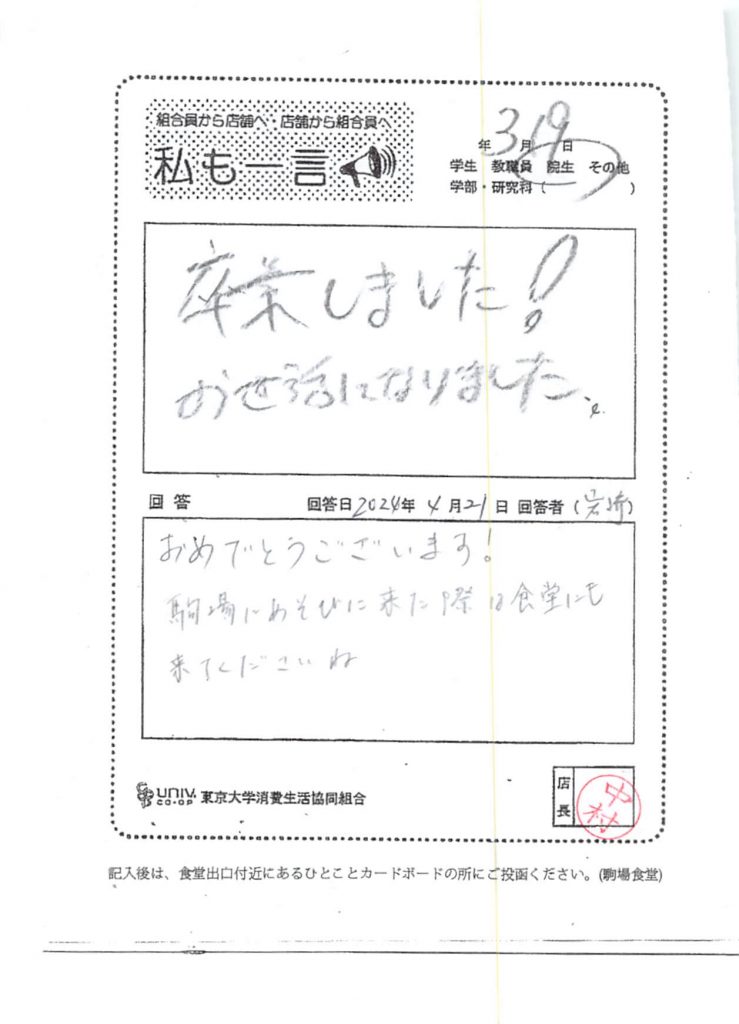 組合員から店舗へ・店舗から組合員へ
私も一言
年 3月 19日
学生 教職員 院生 その他
学部・研究科( )
卒業しました!
お世話になりました。
回答 回答日 2024年 4月21日 回答者(岩崎)
おめでとうございます!
駒場にあそびに来た際は食堂にも
来てくださいね
UNIV. CO-OP 東京大学消費生活協同組合
店長 中村
記入後は、食堂出口付近にあるひとことカードボードの所にご投函ください。(駒場食堂)